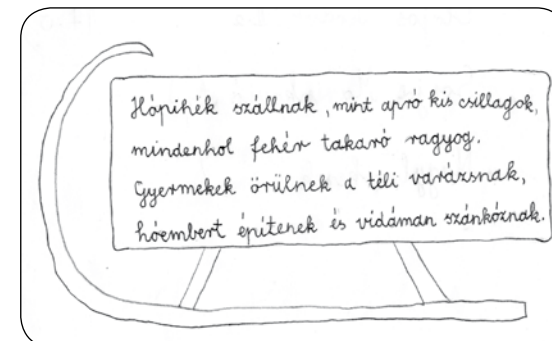 Hópihék szállnak, mint apró kis csillagok,
mindenhol fehér takaró ragyog.
Gyermekek örülnek a téli varázsnak,
hóembert építenek és vidáman szánkóznak.